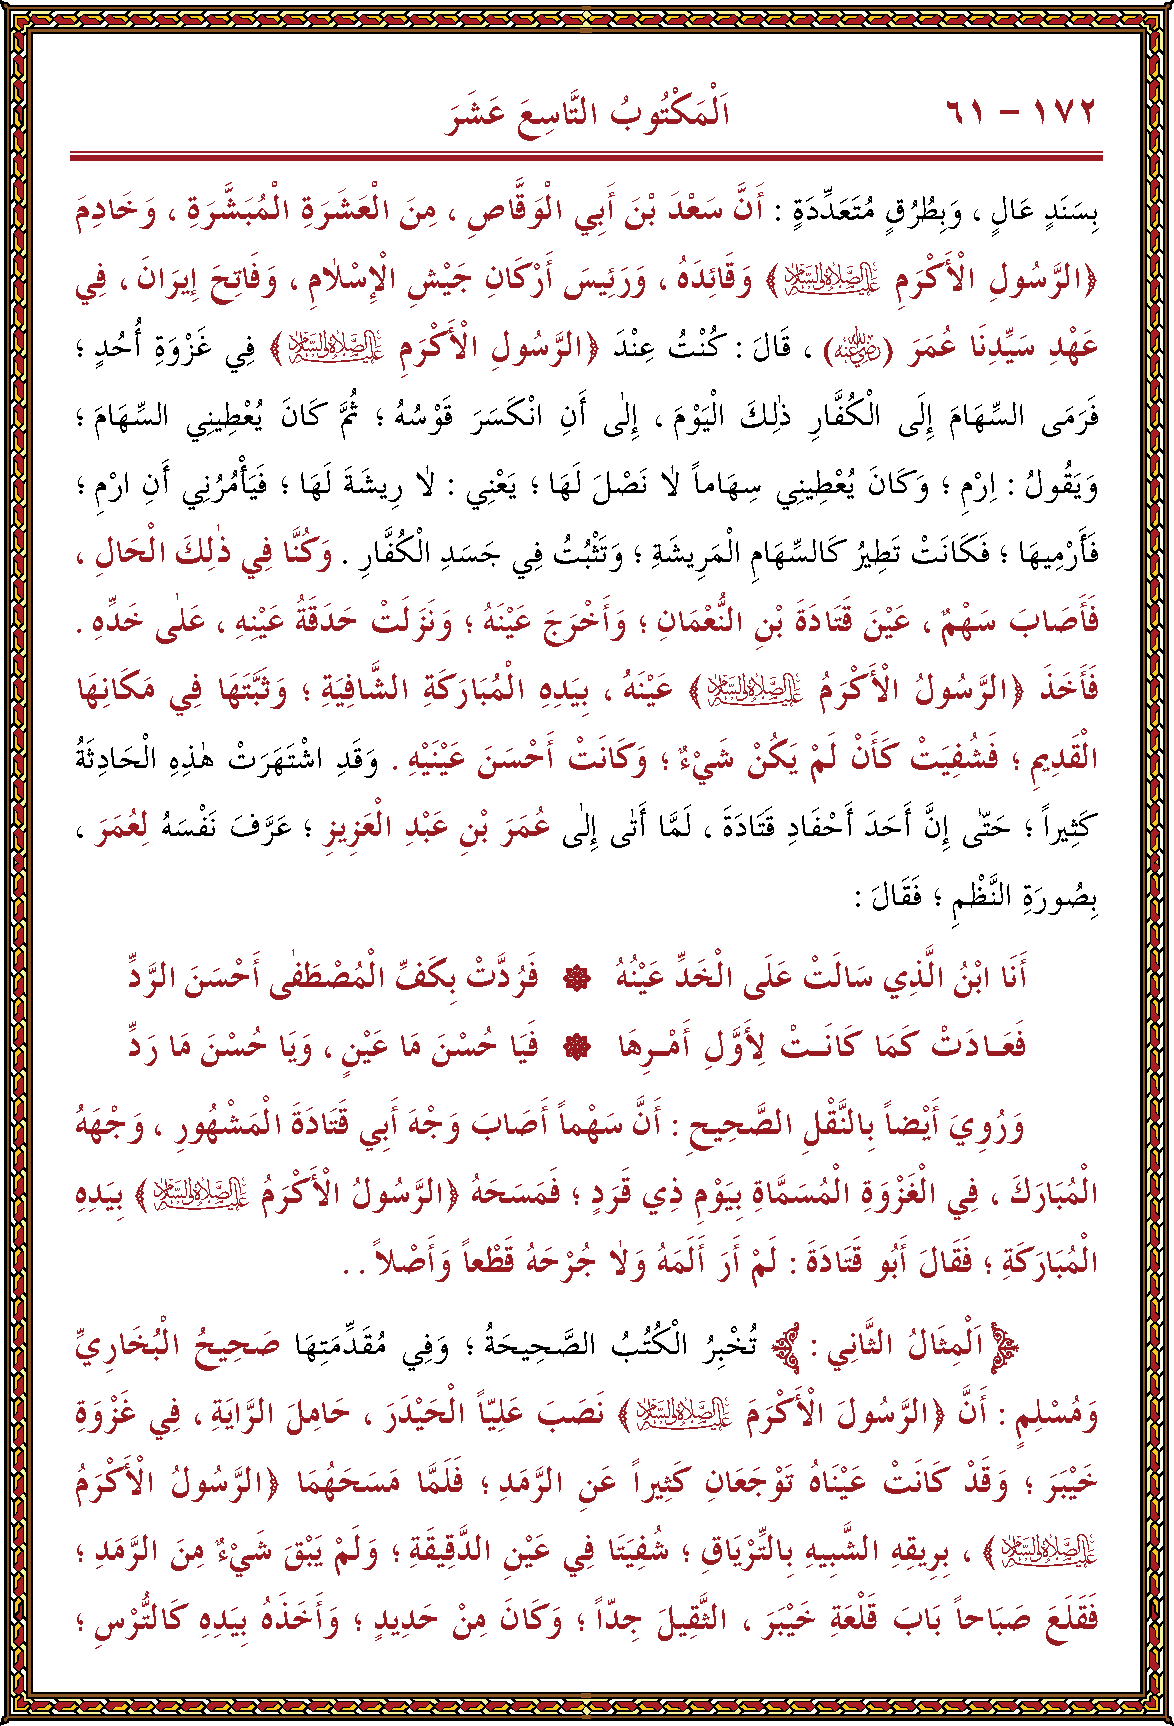 ١٧٢ – ٦١
اَلْمَكْتُوبُ التَّاسِعَ عَشَرَ
بِسَنَدٍ عَالٍ ، وَبِطُرُقٍ مُتَعَدِّدَةٍ : أَنَّ سَعْدَ بْنَ أَبِي الْوَقَّاصِ ، مِنَ الْعَشَرَةِ الْمُبَشَّرَةِ ، وَخَادِمَ
﴿الرَّسُولِ الْأَكْرَمِ عَلَيْهِ الصَّلَاةُ وَالسَّلَامُ﴾ وَقَائِدَهُ ، وَرَئِيسَ أَرْكَانِ جَيْشِ الْإِسْلَامِ ، وَفَاتِحَ إِيرَانَ ، فِي
عَهْدِ سَيِّدِنَا عُمَرَ (رَضِيَ اللهُ عَنْهُ) ، قَالَ : كُنْتُ عِنْدَ ﴿الرَّسُولِ الْأَكْرَمِ عَلَيْهِ الصَّلَاةُ وَالسَّلَامُ﴾ فِي غَزْوَةِ أُحُدٍ ؛
فَرَمَى السِّهَامَ إِلَى الْكُفَّارِ ذٰلِكَ الْيَوْمَ ، إِلٰى أَنِ انْكَسَرَ قَوْسُهُ ؛ ثُمَّ كَانَ يُعْطِينِي السِّهَامَ ؛
وَيَقُولُ : اِرْمِ ؛ وَكَانَ يُعْطِينِي سِهَاماً لَا نَصْلَ لَهَا ؛ يَعْنِي : لَا رِيشَةَ لَهَا ؛ فَيَأْمُرُنِي أَنِ ارْمِ ؛
فَأَرْمِيهَا ؛ فَكَانَتْ تَطِيرُ كَالسِّهَامِ الْمَرِيشَةِ ؛ وَتَثْبُتُ فِي جَسَدِ الْكُفَّارِ . وَكُنَّا فِي ذٰلِكَ الْحَالِ ،
فَأَصَابَ سَهْمٌ ، عَيْنَ قَتَادَةَ بْنِ النُّعْمَانِ ؛ وَأَخْرَجَ عَيْنَهُ ؛ وَنَزَلَتْ حَدَقَةُ عَيْنِهِ ، عَلٰى خَدِّهِ .
فَأَخَذَ ﴿الرَّسُولُ الْأَكْرَمُ عَلَيْهِ الصَّلَاةُ وَالسَّلَامُ﴾ عَيْنَهُ ، بِيَدِهِ الْمُبَارَكَةِ الشَّافِيَةِ ؛ وَثَبَّتَهَا فِي مَكَانِهَا
الْقَدِيمِ ؛ فَشُفِيَتْ كَأَنْ لَمْ يَكُنْ شَيْءٌ ؛ وَكَانَتْ أَحْسَنَ عَيْنَيْهِ . وَقَدِ اشْتَهَرَتْ هٰذِهِ الْحَادِثَةُ
كَثِيراً ؛ حَتّٰى إِنَّ أَحَدَ أَحْفَادِ قَتَادَةَ ، لَمَّا أَتٰى إِلٰى عُمَرَ بْنِ عَبْدِ الْعَزِيزِ ؛ عَرَّفَ نَفْسَهُ لِعُمَرَ ،
بِصُورَةِ النَّظْمِ ؛ فَقَالَ :
أَنَا ابْنُ الَّذِي سَالَتْ عَلَى الْخَدِّ عَيْنُهُ ۞ فَرُدَّتْ بِكَفِّ الْمُصْطَفٰى أَحْسَنَ الرَّدِّ
فَعَادَتْ كَمَا كَانَتْ لِأَوَّلِ أَمْرِهَا ۞ فَيَا حُسْنَ مَا عَيْنٍ ، وَيَا حُسْنَ مَا رَدِّ
وَرُوِيَ أَيْضاً بِالنَّقْلِ الصَّحِيحِ : أَنَّ سَهْماً أَصَابَ وَجْهَ أَبِي قَتَادَةَ الْمَشْهُورِ ، وَجْهَهُ
الْمُبَارَكَ ، فِي الْغَزْوَةِ الْمُسَمَّاةِ بِيَوْمِ ذِي قَرَدٍ ؛ فَمَسَحَهُ ﴿الرَّسُولُ الْأَكْرَمُ عَلَيْهِ الصَّلَاةُ وَالسَّلَامُ﴾ بِيَدِهِ
الْمُبَارَكَةِ ؛ فَقَالَ أَبُو قَتَادَةَ : لَمْ أَرَ أَلَمَهُ وَلَا جُرْحَهُ قَطْعاً وَأَصْلاً . .
﴿اَلْمِثَالُ الثَّانِي :﴾ تُخْبِرُ الْكُتُبُ الصَّحِيحَةُ ؛ وَفِي مُقَدِّمَتِهَا صَحِيحُ الْبُخَارِيِّ
وَمُسْلِمٍ : أَنَّ ﴿الرَّسُولَ الْأَكْرَمَ عَلَيْهِ الصَّلَاةُ وَالسَّلَامُ﴾ نَصَبَ عَلِيّاً الْحَيْدَرَ ، حَامِلَ الرَّايَةِ ، فِي غَزْوَةِ
خَيْبَرَ ؛ وَقَدْ كَانَتْ عَيْنَاهُ تَوْجَعَانِ كَثِيراً عَنِ الرَّمَدِ ؛ فَلَمَّا مَسَحَهُمَا ﴿الرَّسُولُ الْأَكْرَمُ
عَلَيْهِ الصَّلَاةُ وَالسَّلَامُ﴾ ، بِرِيقِهِ الشَّبِيهِ بِالتِّرْيَاقِ ؛ شُفِيَتَا فِي عَيْنِ الدَّقِيقَةِ ؛ وَلَمْ يَبْقَ شَيْءٌ مِنَ الرَّمَدِ ؛
فَقَلَعَ صَبَاحاً بَابَ قَلْعَةِ خَيْبَرَ ، الثَّقِيلَ جِدّاً ؛ وَكَانَ مِنْ حَدِيدٍ ؛ وَأَخَذَهُ بِيَدِهِ كَالتُّرْسِ ؛